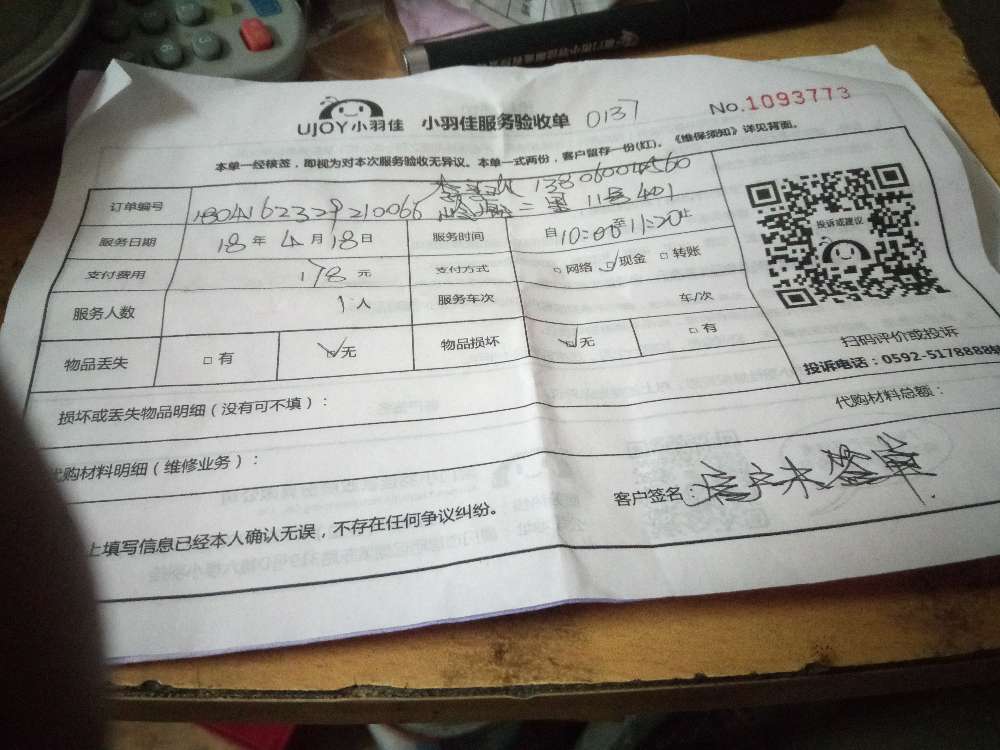 UJOY小羽佳 小羽佳服务验收单 0137
No.1093773
本单一经核签，即视为对本次服务验收无异议。本单一式两份，客户留存一份(红)。《维保须知》详见背面。
13806004560
订单编号 1804162329210066 二里11号401
服务日期 18年4月18日 服务时间 自10:00至11:20止
支付费用 178元 支付方式 □网络 ☑现金 □转账
服务人数 1人 服务车次 车/次
物品丢失 □有 ☑无 物品损坏 ☑无 □有
投诉或建议
扫码评价或投诉
投诉电话：0592-5178888转
损坏或丢失物品明细（没有可不填）：
代购材料总额：
代购材料明细（维修业务）：
客户签名：客户未签单
上填写信息已经本人确认无误，不存在任何争议纠纷。